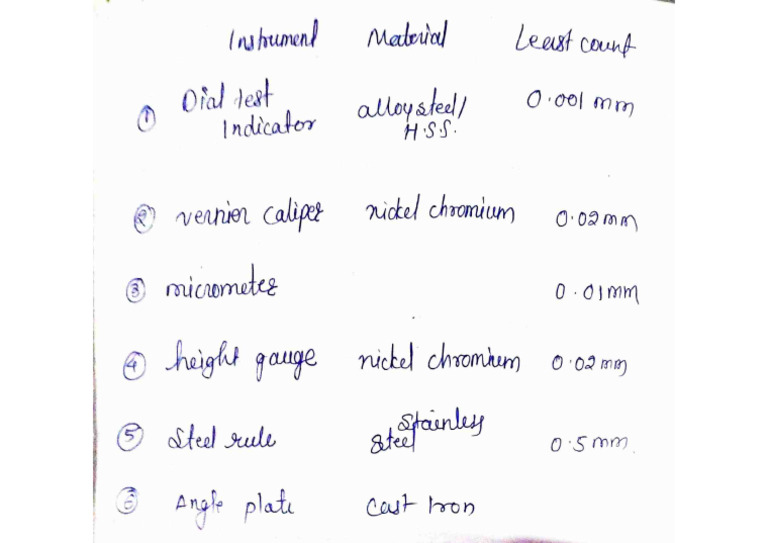 Instrument Material Least count
① Dial test Indicator alloy steel/ H.S.S. 0.001 mm
② vernier caliper nickel chromium 0.02 mm
③ micrometer 0.01 mm
④ height gauge nickel chromium 0.02 mm
⑤ Steel rule Stainless Steel 0.5 mm.
⑥ Angle plate Cast Iron